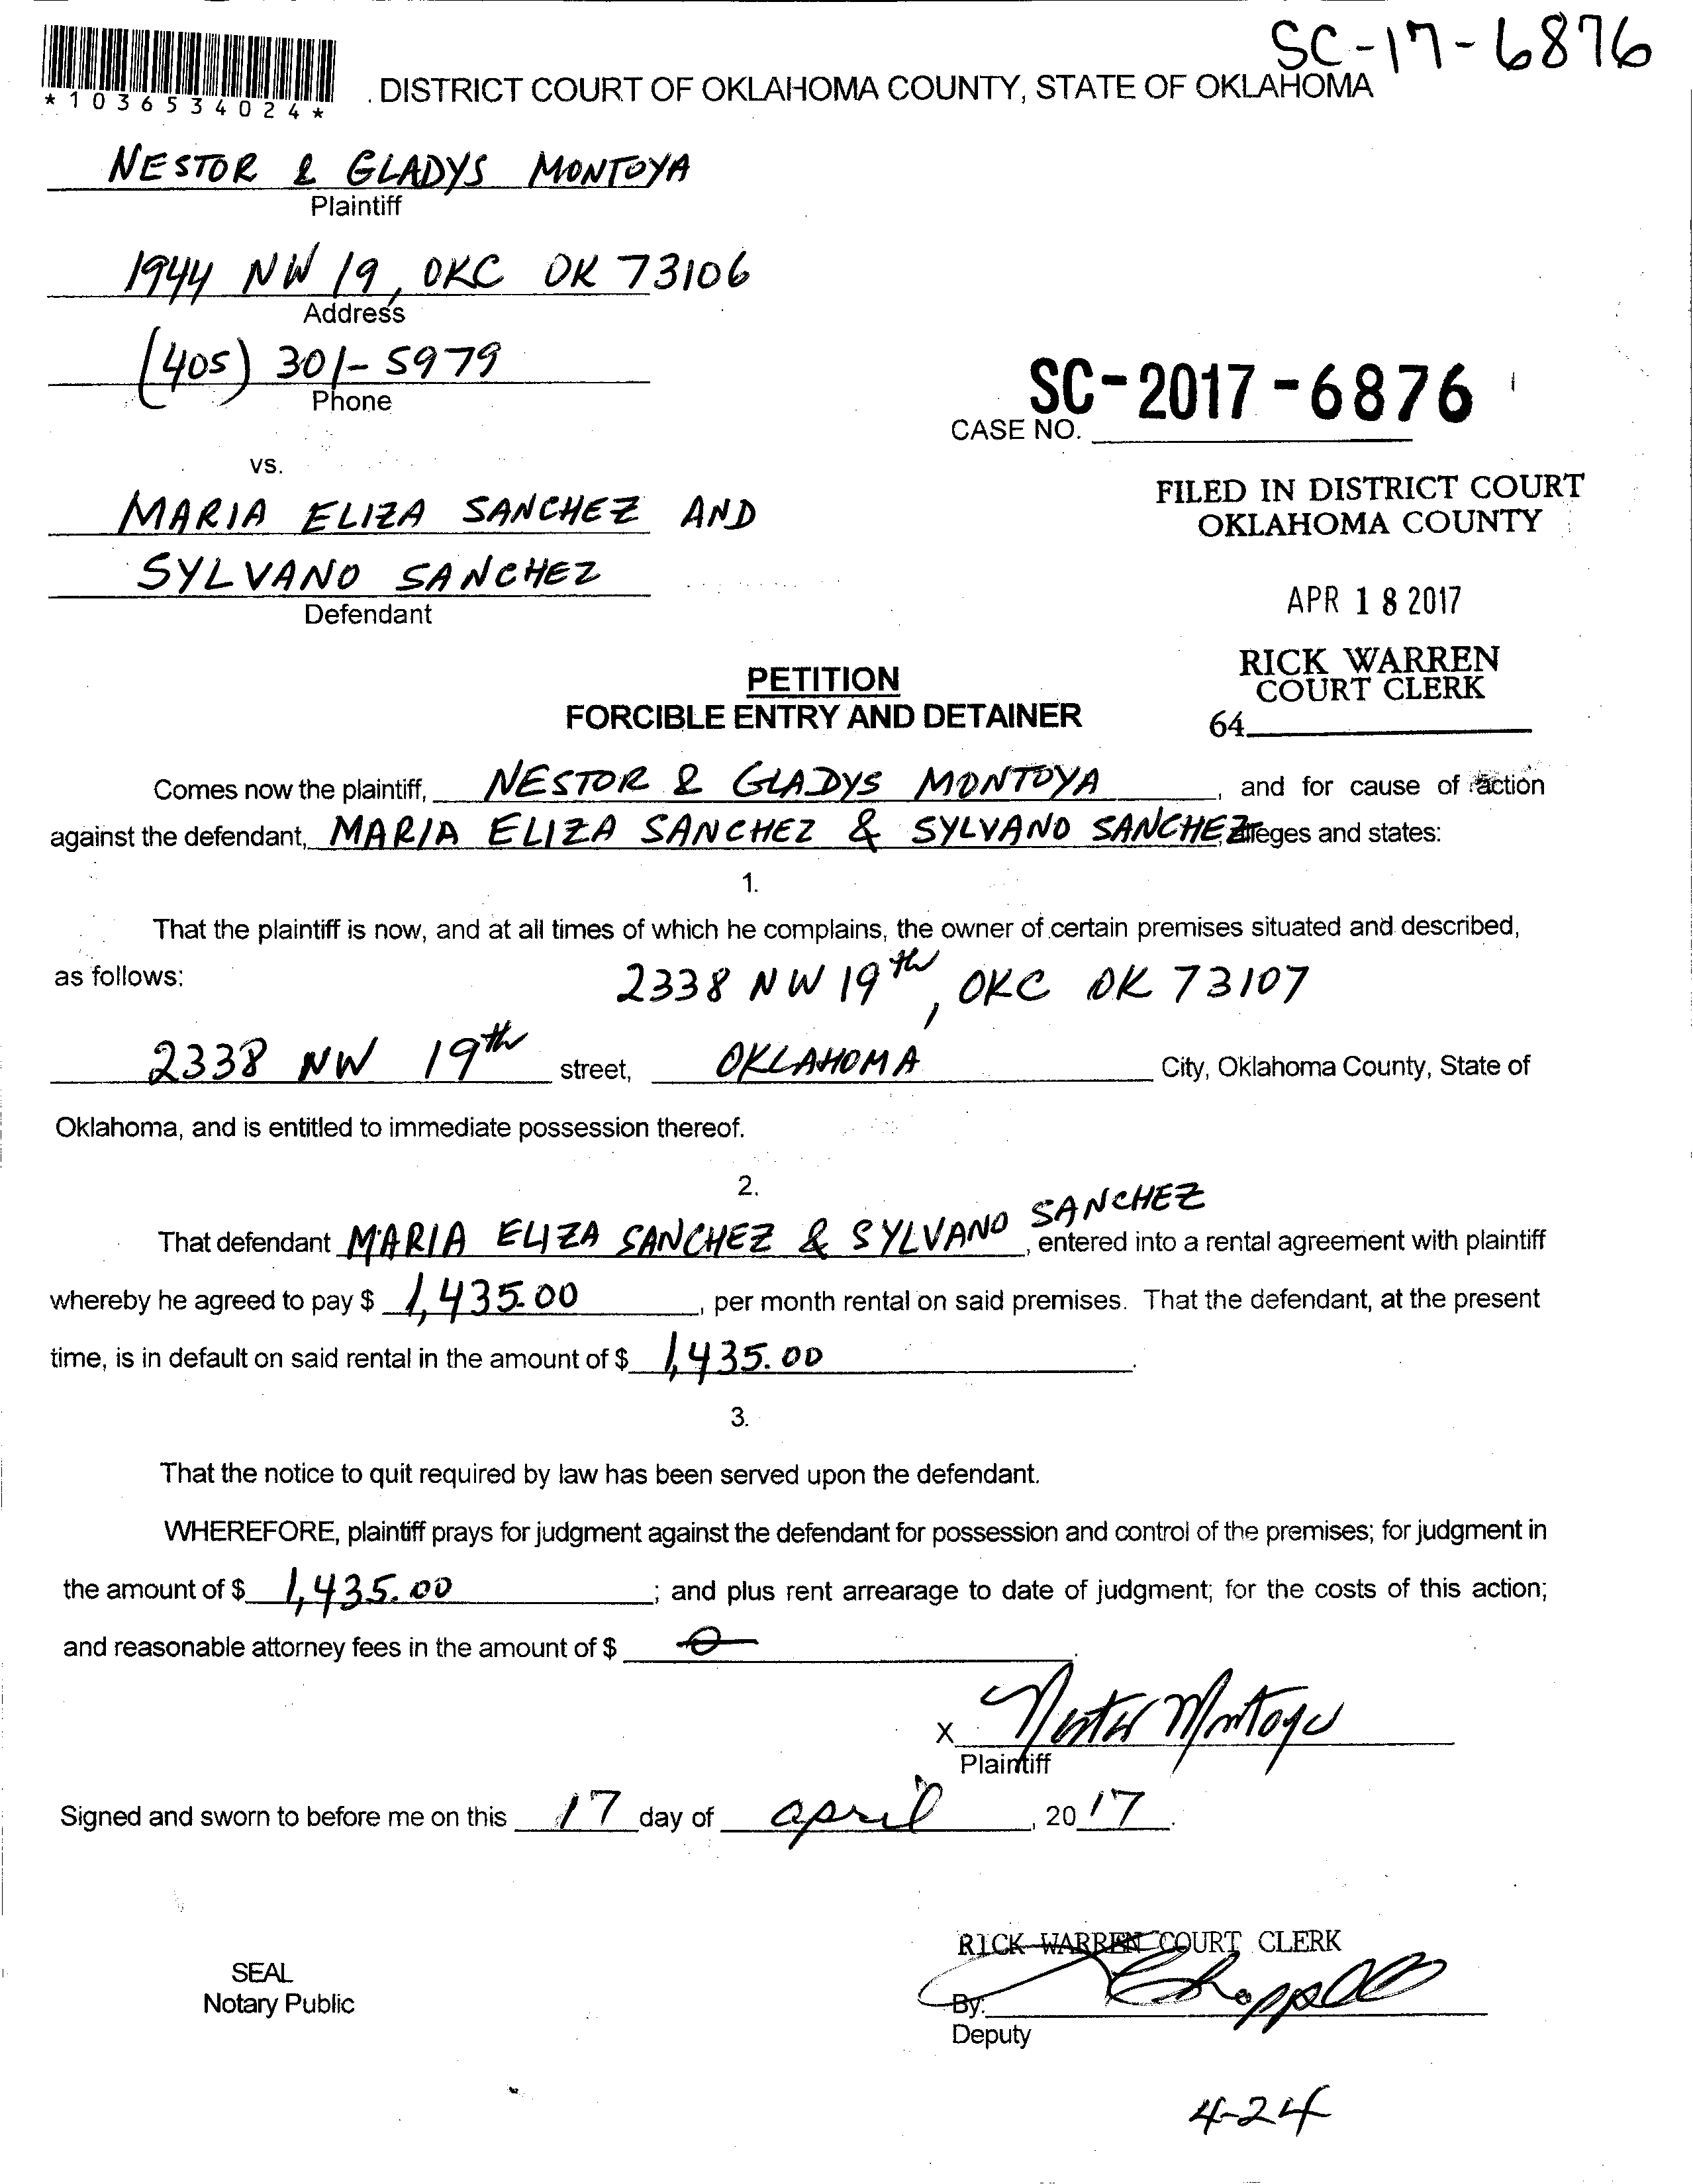 SC-17-6876
*1036534024*
DISTRICT COURT OF OKLAHOMA COUNTY, STATE OF OKLAHOMA
NESTOR & GLADYS MONTOYA
Plaintiff
1944 NW 19, OKC OK 73106
Address
(405) 301-5979
Phone
SC-2017-6876
CASE NO.
vs.
MARIA ELIZA SANCHEZ AND
SYLVANO SANCHEZ
Defendant
FILED IN DISTRICT COURT
OKLAHOMA COUNTY
APR 18 2017
RICK WARREN
COURT CLERK
64
PETITION
FORCIBLE ENTRY AND DETAINER
Comes now the plaintiff, NESTOR & GLADYS MONTOYA, and for cause of action
against the defendant, MARIA ELIZA SANCHEZ & SYLVANO SANCHEZ, alleges and states:
1.
That the plaintiff is now, and at all times of which he complains, the owner of certain premises situated and described,
as follows: 2338 NW 19th, OKC OK 73107
2338 NW 19th street, OKLAHOMA City, Oklahoma County, State of
Oklahoma, and is entitled to immediate possession thereof.
2.
That defendant MARIA ELIZA SANCHEZ & SYLVANO SANCHEZ, entered into a rental agreement with plaintiff
whereby he agreed to pay $ 1,435.00, per month rental on said premises. That the defendant, at the present
time, is in default on said rental in the amount of $ 1,435.00.
3.
That the notice to quit required by law has been served upon the defendant.
WHEREFORE, plaintiff prays for judgment against the defendant for possession and control of the premises; for judgment in
the amount of $ 1,435.00; and plus rent arrearage to date of judgment; for the costs of this action;
and reasonable attorney fees in the amount of $ 0.
X Nestor Montoya
Plaintiff
Signed and sworn to before me on this 17 day of april, 2017.
RICK WARREN COURT CLERK
SEAL
Notary Public
By: Chappell
Deputy
4-24